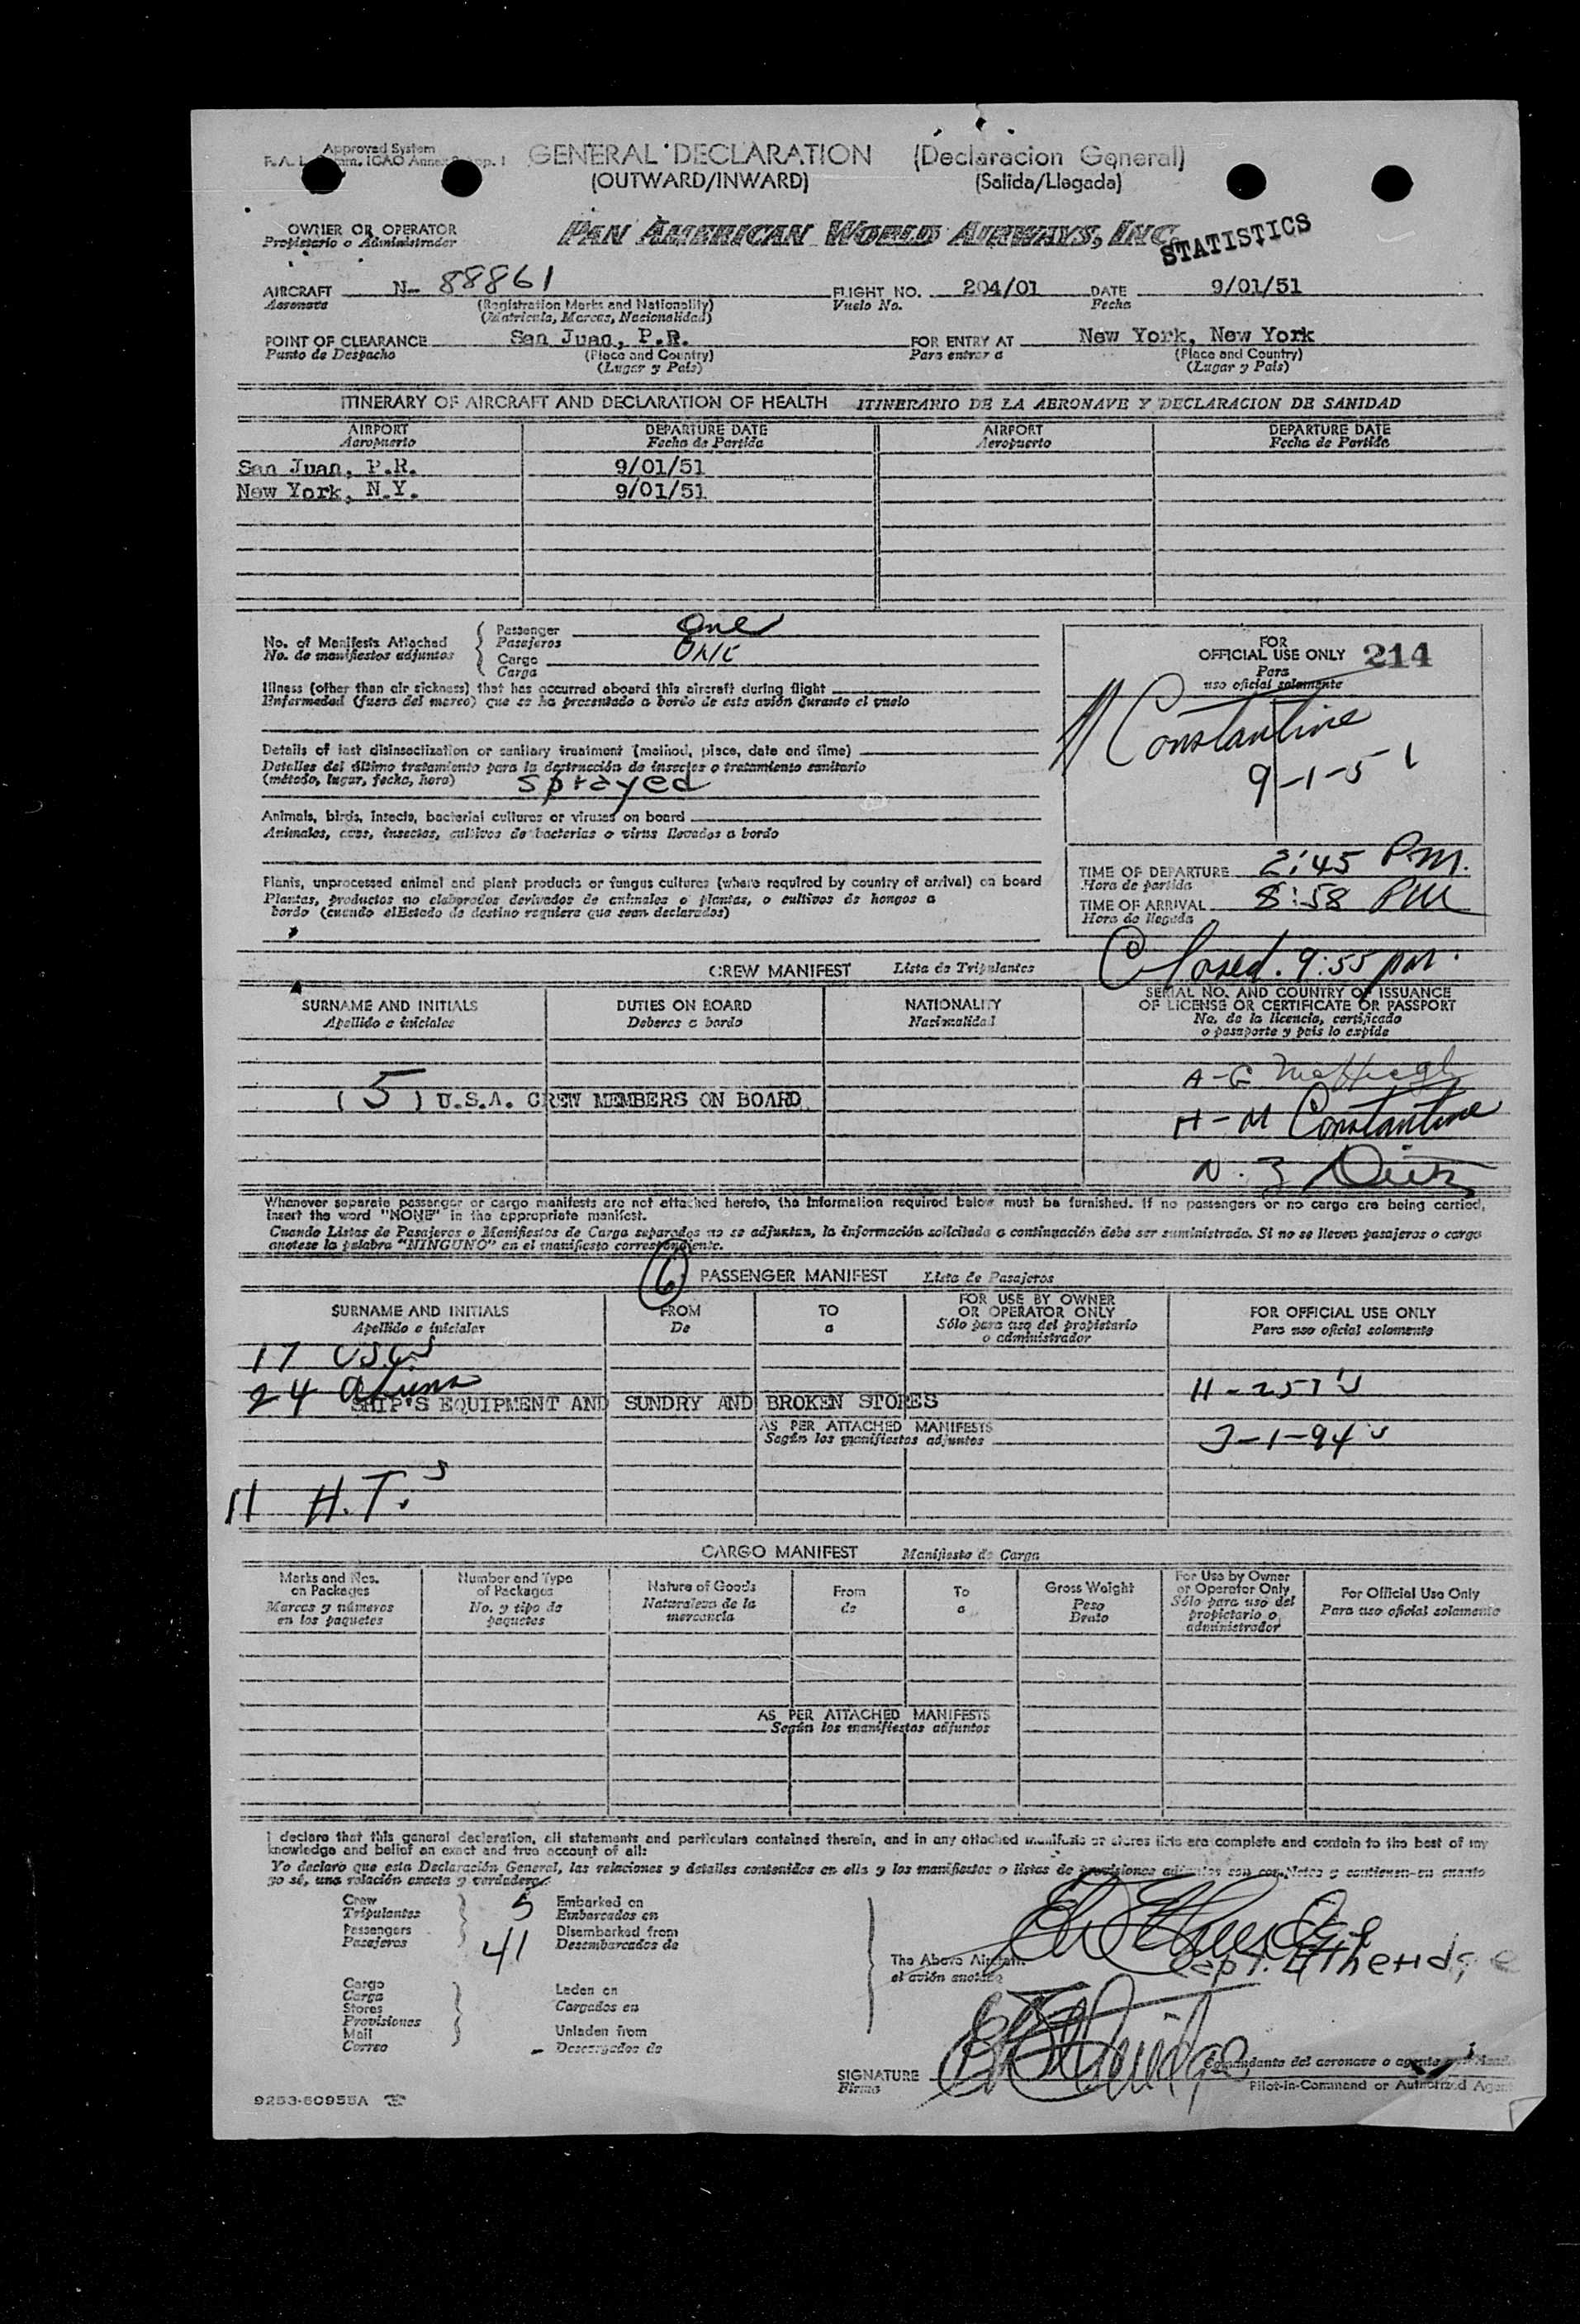 Approved System
GENERAL DECLARATION (Declaracion General)
(OUTWARD/INWARD) (Salida/Llegada)
OWNER OR OPERATOR PAN AMERICAN WORLD AIRWAYS, INC.
Propietario o Administrador
STATISTICS
AIRCRAFT N- 88861 FLIGHT NO. 204/01 DATE 9/01/51
Aeronave (Registration Marks and Nationality) Vuelo No. Fecha
(Matricula, Marcas, Nacionalidad)
POINT OF CLEARANCE San Juan, P.R. FOR ENTRY AT New York, New York
Punto de Despacho (Place and Country) Para entrar a (Place and Country)
(Lugar y País) (Lugar y País)
ITINERARY OF AIRCRAFT AND DECLARATION OF HEALTH ITINERARIO DE LA AERONAVE Y DECLARACION DE SANIDAD
AIRPORT DEPARTURE DATE AIRPORT DEPARTURE DATE
Aeropuerto Fecha de Partida Aeropuerto Fecha de Partida
San Juan, P.R. 9/01/51
New York, N.Y. 9/01/51
No. of Manifests Attached Passenger One
No. de manifiestos adjuntos Pasajeros
Cargo ONE
Carga
Illness (other than air sickness) that has occurred aboard this aircraft during flight
Enfermedad (fuera del mareo) que se ha presentado a bordo de este avión durante el vuelo
Details of last disinsectization or sanitary treatment (method, place, date and time)
Detalles del último tratamiento para la destrucción de insectos o tratamiento sanitario
(método, lugar, fecha, hora) Sprayed
Animals, birds, insects, bacterial cultures or viruses on board
Animales, aves, insectos, cultivos de bacterias o virus llevados a bordo
Plants, unprocessed animal and plant products or fungus cultures (where required by country of arrival) on board
Plantas, productos no elaborados derivados de animales o plantas, o cultivos de hongos a
bordo (cuando el Estado de destino requiera que sean declarados)
FOR
OFFICIAL USE ONLY 214
Para
uso oficial solamente
M Constantine
9-1-51
TIME OF DEPARTURE 2:45 PM.
Hora de partida
TIME OF ARRIVAL 8:58 PM
Hora de llegada
Closed. 9:55 pm.
CREW MANIFEST Lista de Tripulantes
SURNAME AND INITIALS DUTIES ON BOARD NATIONALITY SERIAL NO. AND COUNTRY OF ISSUANCE
OF LICENSE OR CERTIFICATE OR PASSPORT
Apellido e iniciales Deberes a bordo Nacionalidad No. de la licencia, certificado
o pasaporte y país lo expide
(5) U.S.A. CREW MEMBERS ON BOARD
H-M Constantine
Whenever separate passenger or cargo manifests are not attached hereto, the information required below must be furnished. If no passengers or no cargo are being carried,
insert the word "NONE" in the appropriate manifest.
Cuando Listas de Pasajeros o Manifiestos de Carga separados no se adjuntan, la información solicitada a continuación debe ser suministrada. Si no se lleven pasajeros o carga
anótese la palabra "NINGUNO" en el manifiesto correspondiente.
6 PASSENGER MANIFEST Lista de Pasajeros
SURNAME AND INITIALS FROM TO FOR USE BY OWNER
OR OPERATOR ONLY FOR OFFICIAL USE ONLY
Apellido e iniciales De a Sólo para uso del propietario
o administrador Para uso oficial solamente
17 USCs
24 Aliens
SHIP'S EQUIPMENT AND SUNDRY AND BROKEN STORES
AS PER ATTACHED MANIFESTS
Según los manifiestos adjuntos
11 H.T.s
CARGO MANIFEST Manifiesto de Carga
Marks and Nos.
on Packages
Marcas y números
en los paquetes
Number and Type
of Packages
No. y tipo de
paquetes
Nature of Goods
Naturaleza de la
mercancia
From
de
To
a
Gross Weight
Peso
Bruto
For Use by Owner
or Operator Only
Sólo para uso del
propietario o
administrador
For Official Use Only
Para uso oficial solamente
AS PER ATTACHED MANIFESTS
Según los manifiestos adjuntos
I declare that this general declaration, all statements and particulars contained therein, and in any attached manifests or stores lists are complete and contain to the best of my
knowledge and belief an exact and true account of all:
Yo declaro que esta Declaración General, las relaciones y detalles contenidos en ella y los manifiestos o listas de provisiones adjuntos son completos y contienen en cuanto
yo sé, una relación exacta y verdadera:
Crew 5 Embarked on
Tripulantes Embarcados en
Passengers 41 Disembarked from
Pasajeros Desembarcados de
Cargo Laden on
Carga Cargados en
Stores
Provisiones
Mail Unladen from
Correo Descargados de
The Above Aircraft
el avión anotado
Capt. Etheridge
SIGNATURE
Firma
Comandante del aeronave o agente
Pilot-in-Command or Authorized Agent
9253-60955A